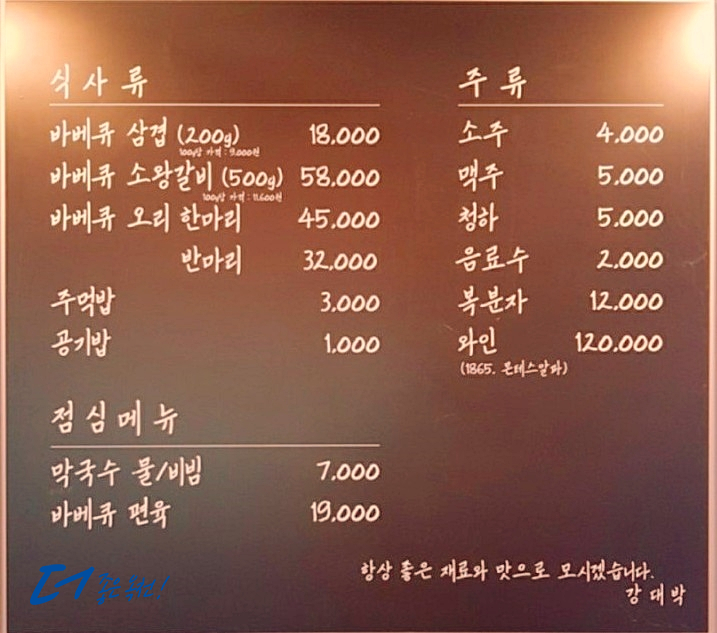 식사류
바베큐 삼겹 (200g) 18,000
100g당 가격 : 9,000원
바베큐 소왕갈비 (500g) 58,000
100g당 가격 : 11,600원
바베큐 오리 한마리 45,000
반마리 32,000
주먹밥 3,000
공기밥 1,000
점심메뉴
막국수 물/비빔 7,000
바베큐 편육 19,000
주류
소주 4,000
맥주 5,000
청하 5,000
음료수 2,000
복분자 12,000
와인 120,000
(1865. 몬테스알파)
항상 좋은 재료와 맛으로 모시겠습니다.
강대박
더